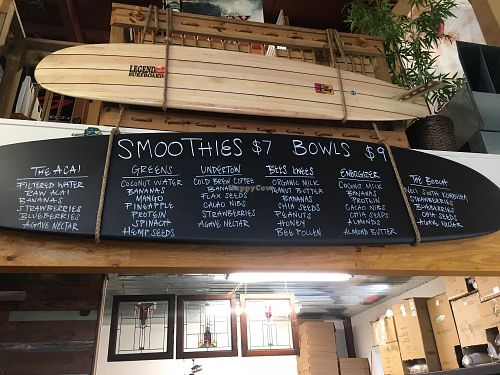 LEGEND
SURFBOARDS
SMOOTHIES $7 BOWLS $9
THE ACAI
FILTERED WATER
RAW ACAI
BANANAS
STRAWBERRIES
BLUEBERRIES
AGAVE NECTAR
GREENS
COCONUT WATER
BANANAS
MANGO
PINEAPPLE
PROTEIN
SPINACH
HEMP SEEDS
UNDERTOW
COLD BREW COFFEE
BANANAS
FLAX SEEDS
CACAO NIBS
STRAWBERRIES
AGAVE NECTAR
BEES KNEES
ORGANIC MILK
PEANUT BUTTER
BANANAS
CHIA SEEDS
PEANUTS
HONEY
BEE POLLEN
ENERGIZER
COCONUT MILK
BANANAS
PROTEIN
CACAO NIBS
CHIA SEEDS
ALMONDS
ALMOND BUTTER
THE BOOCH
KOMBUCHA
STRAWBERRIES
BLUEBERRIES
CHIA SEEDS
AGAVE NECTAR
HappyCow